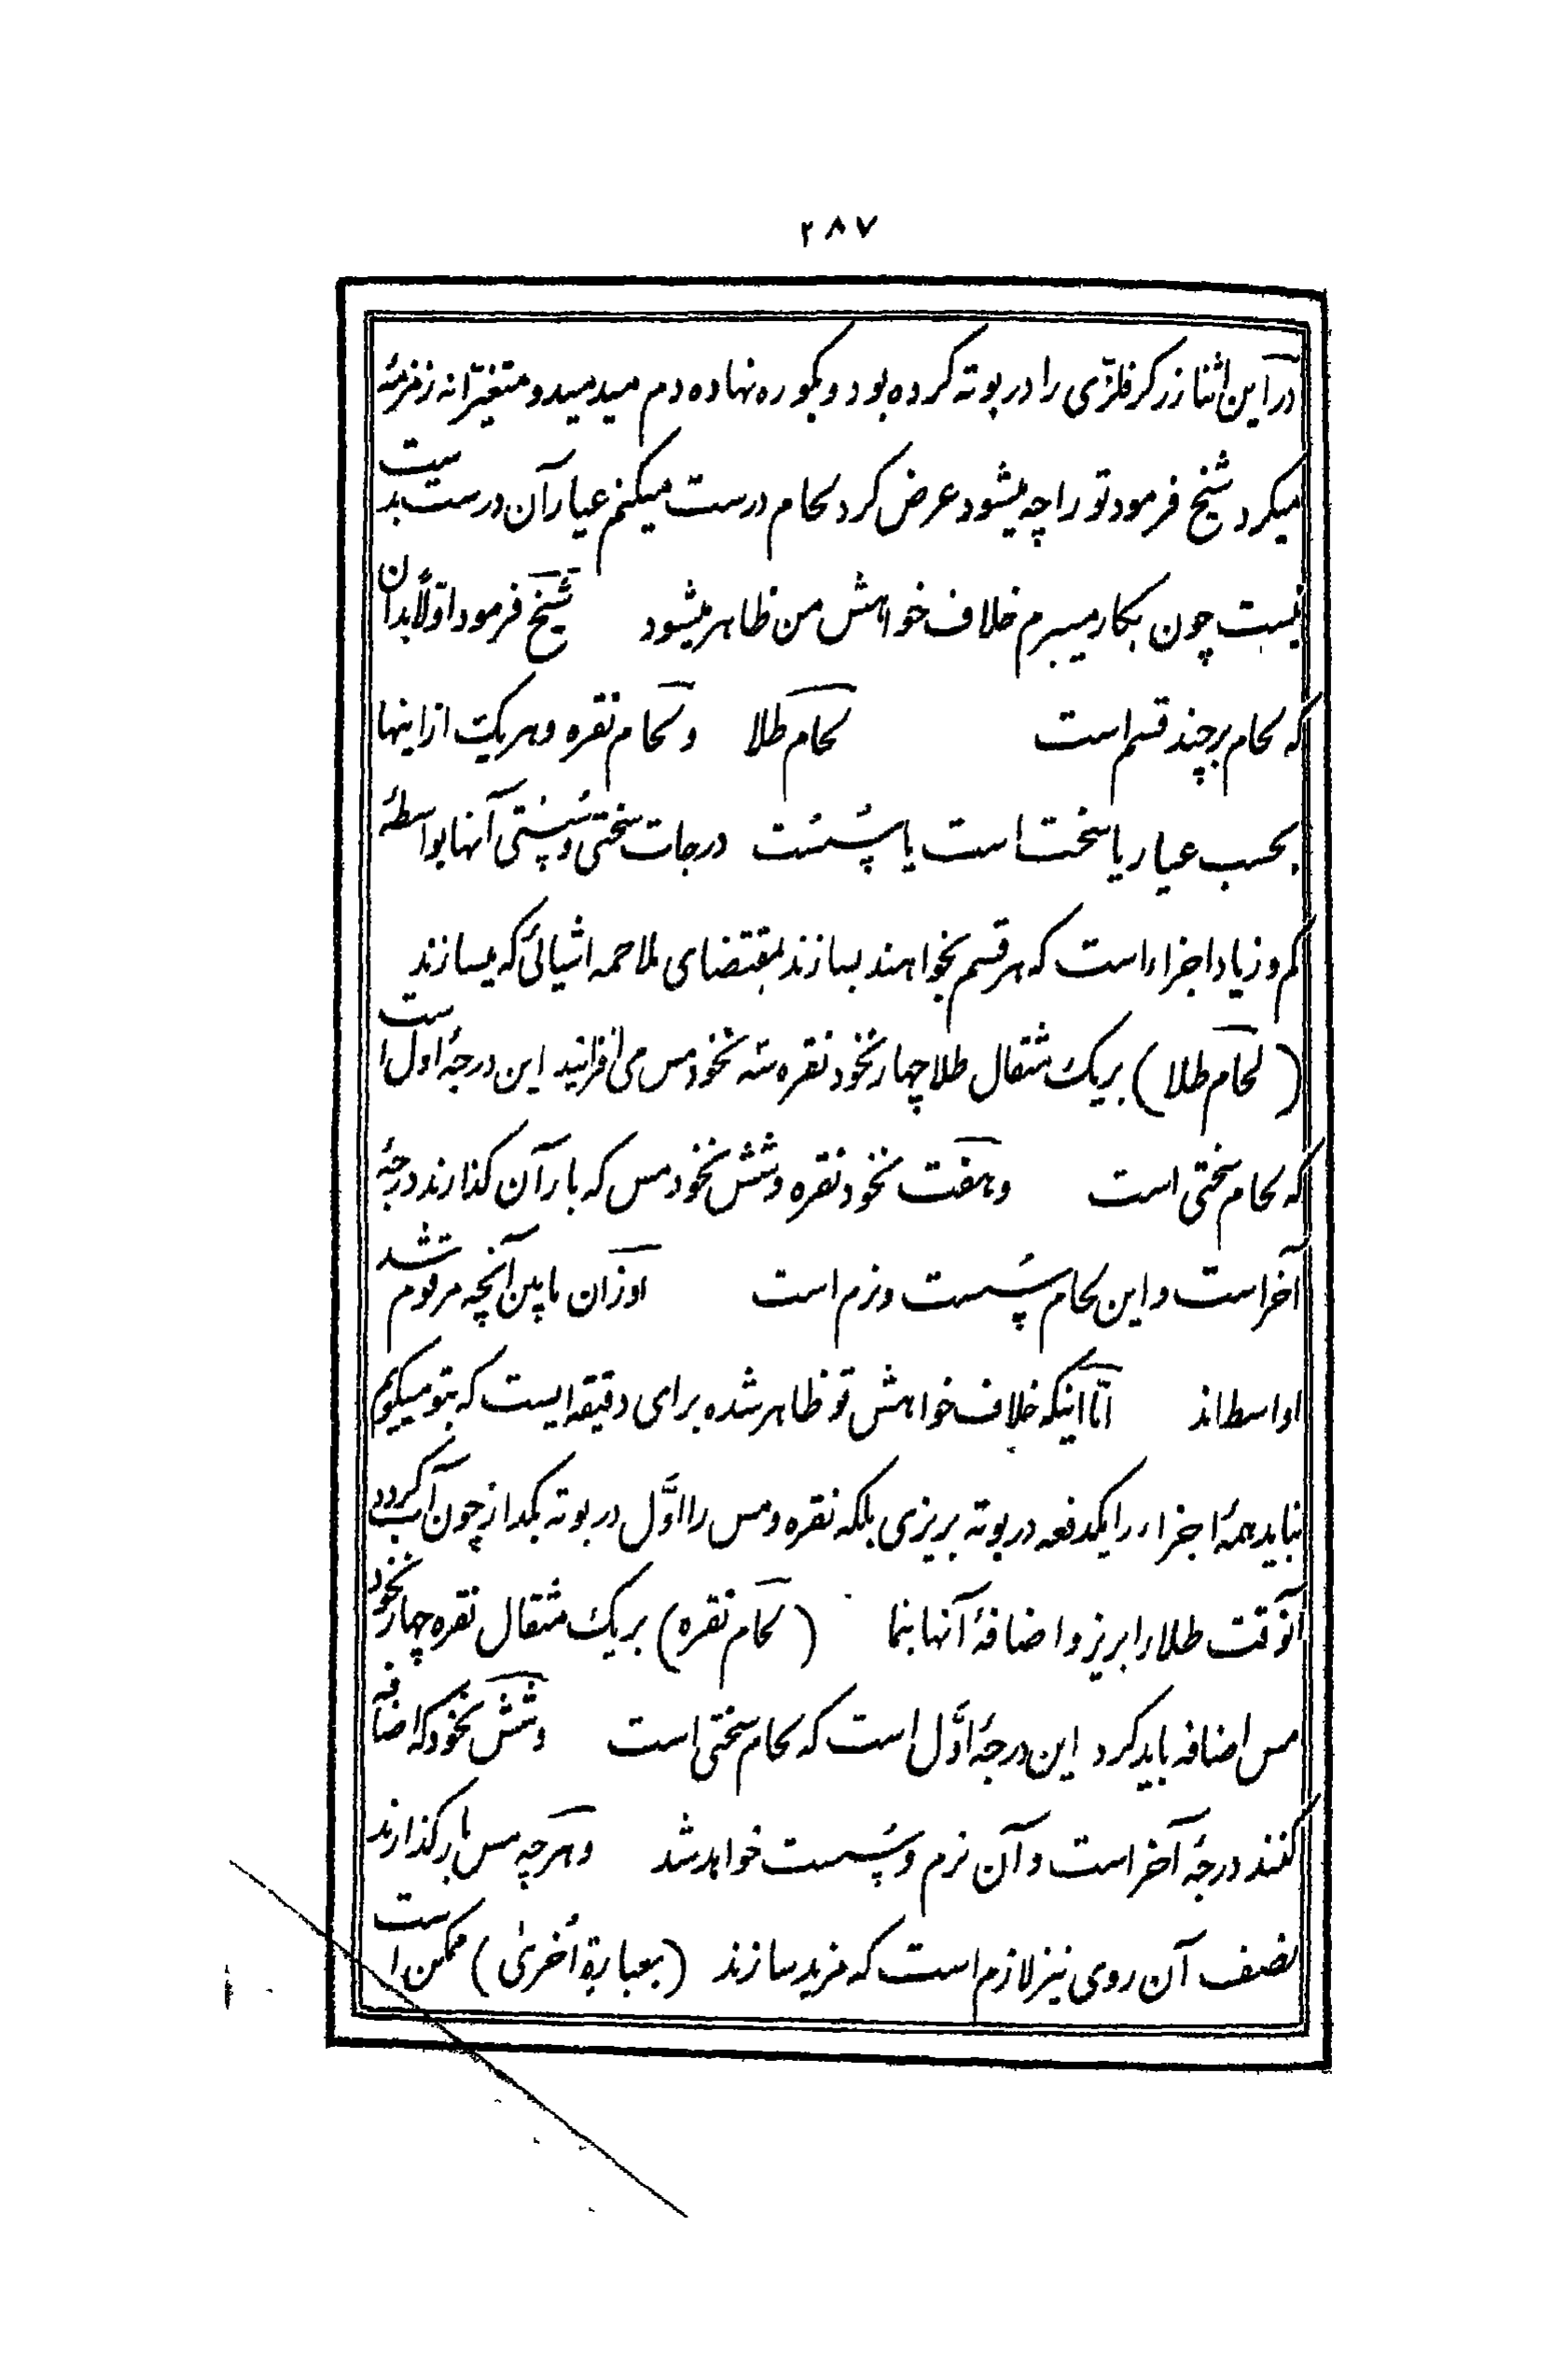 ۲۸۷
در این اثنا زرگر فلزّی را در بوته کرده بود و بکوره نهاده دم میدمید و متغیّرانه زمزمهٔ
میکرد شیخ فرمود تو را چه میشود عرض کرد لحام درست میکنم عیار آن درست بدست
نیست چون بکار میبرم خلاف خواهش من ظاهر میشود شیخ فرمود اوّلاً بدان
که لحام بر چند قسم است لحام طلا و لحام نقره و هر یک از اینها
بحسب عیار یا سخت است یا سُست درجات سختی و سُستی آنها بواسطهٔ
کم و زیاد اجزاء است که هر قسم بخواهند بسازند بمقتضای ملاحمه اشیائی که میسازند
(لحام طلا) بر یک مثقال طلا چهار نخود نقره سه نخود مس می افزایند این درجهٔ اول است
که لحام سختی است و هفت نخود نقره و شش نخود مس که بار آن گذارند درجهٔ
آخر است و این لحام سُست و نرم است اوزان مابین آنچه مرقوم شد
اواسط اند امّا اینکه خلاف خواهش تو ظاهر شده برای دقیقه ایست که بتو میگویم
نباید همهٔ اجزاء را یکدفعه در بوته بریزی بلکه نقره و مس را اوّل در بوته بگداز چون آب گردد
آنوقت طلا را بریز و اضافهٔ آنها بنما (لحام نقره) بر یک مثقال نقره چهار نخود
مس اضافه باید کرد این درجهٔ اوّل است که لحام سختی است و شش نخود که اضافه
کنند درجهٔ آخر است و آن نرم و سُست خواهد شد و هر چه مس بار گذارند
نصف آن روی نیز لازم است که مزید سازند (بعبارة اُخریٰ) ممکن است